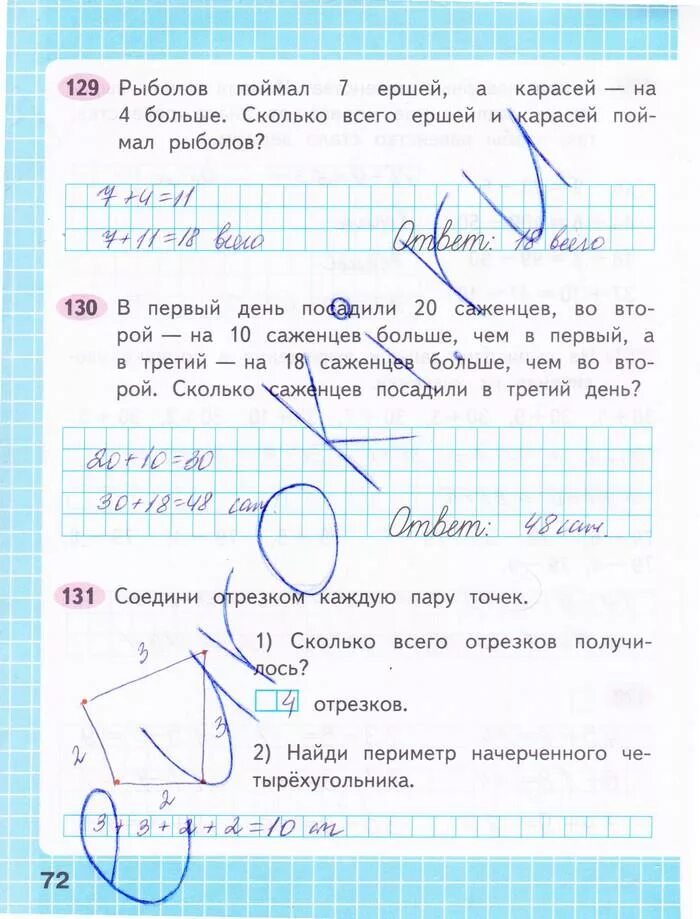 129 Рыболов поймал 7 ершей, а карасей — на
4 больше. Сколько всего ершей и карасей пой-
мал рыболов?
7+4=11
7+11=18 всего
Ответ: 18 всего
130 В первый день посадили 20 саженцев, во вто-
рой — на 10 саженцев больше, чем в первый, а
в третий — на 18 саженцев больше, чем во вто-
рой. Сколько саженцев посадили в третий день?
20+10=30
30+18=48 саж.
Ответ: 48 саж.
131 Соедини отрезком каждую пару точек.
1) Сколько всего отрезков получи-
лось?
4 отрезков.
2) Найди периметр начерченного че-
тырёхугольника.
3
2
3
2
3+3+2+2=10 см
72